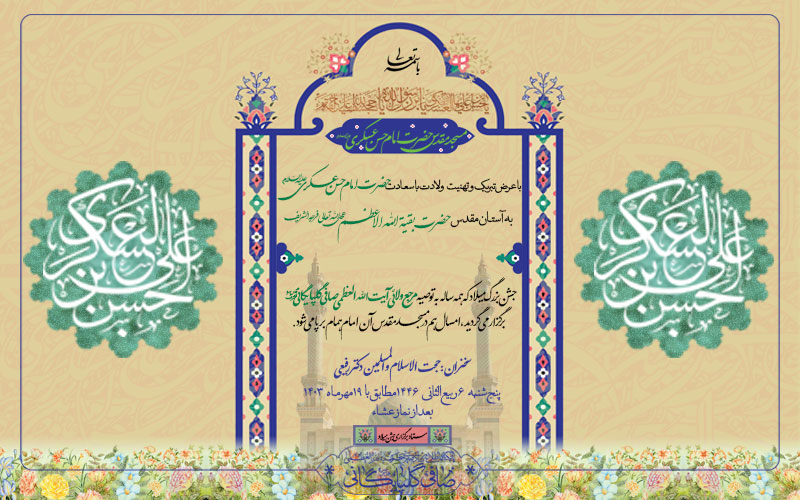 باسمه تعالی
مسجد مقدس حضرت امام حسن عسکری علیه‌السلام
با عرض تبریک و تهنیت ولادت باسعادت حضرت امام حسن عسکری علیه‌السلام
به آستان مقدس حضرت بقیة الله الاعظم عجل الله تعالی فرجه الشریف
جشن بزرگ میلاد که همه ساله به توصیه مرجع ولائی آیت الله العظمی صافی گلپایگانی
برگزار می گردید، امسال هم در مسجد مقدس آن امام همام برپا می شود.
سخنران: حجت الاسلام والمسلمین دکتر رفیعی
پنج شنبه ۶ ربیع الثانی ۱۴۴۶ مطابق با ۱۹ مهرماه ۱۴۰۳
بعد از نماز عشاء
ستاد برگزاری جشن میلاد
صافی گلپایگانی
حسن بن علی العسکری
حسن بن علی العسکری